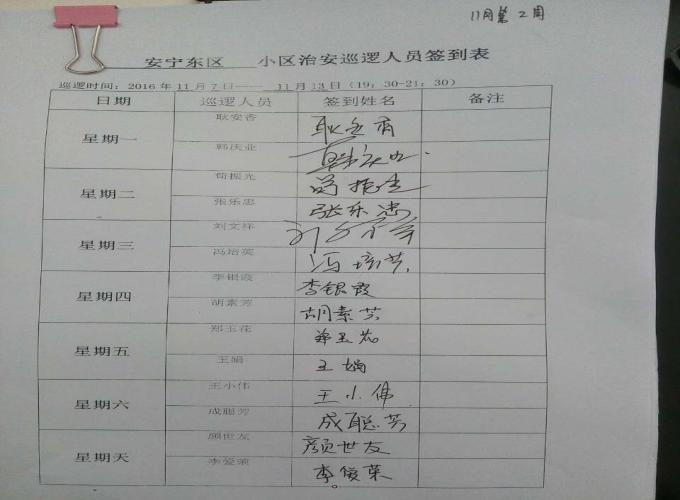 11月第2周
安宁东区 小区治安巡逻人员签到表
巡逻时间：2016年11月7日——11月13日（19：30-21：30）
日期 巡逻人员 签到姓名 备注
星期一
耿安香 耿安香
韩庆业 韩庆业
星期二
荀振光 荀振光
张乐忠 张乐忠
星期三
刘文祥 刘文祥
冯培英 冯培英
星期四
李银霞 李银霞
胡素芳 胡素芳
星期五
郑玉花 郑玉花
王娟 王娟
星期六
王小伟 王小伟
成聪芳 成聪芳
星期天
颜世友 颜世友
李爱荣 李俊荣